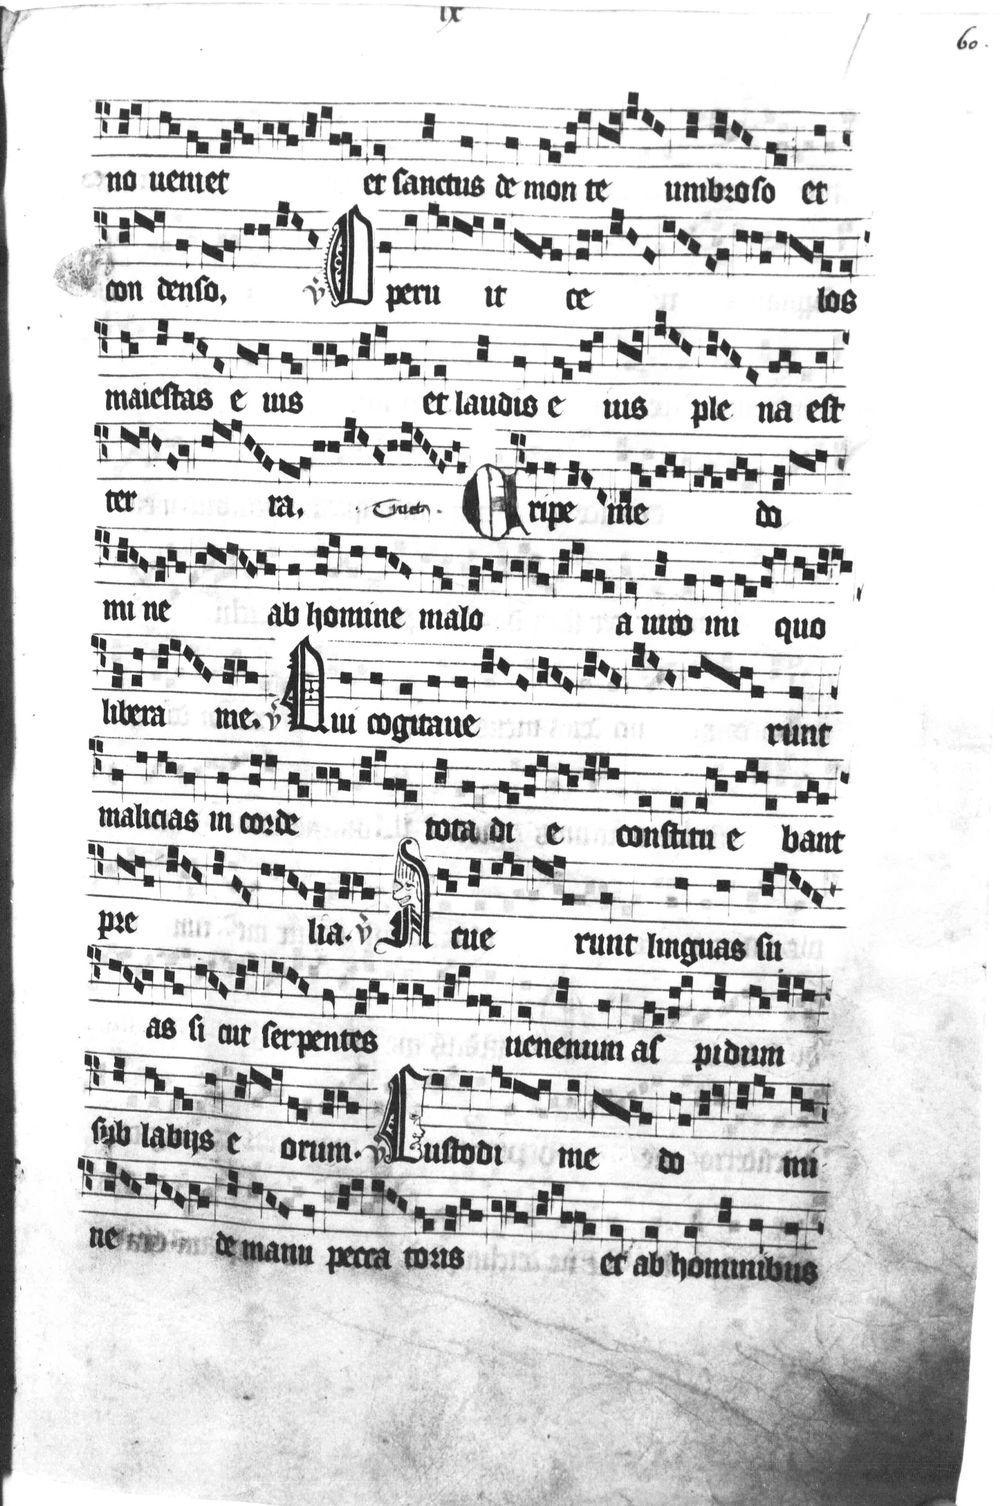 ix
60.
no ueniet et sanctus de mon te umbroso et
con denso, ℣ Operu it ce los
maiestas e ius et laudis e ius ple na est
ter ra, Tractus. Eripe me do
mi ne ab homine malo a uiro ini quo
libera me. ℣ Qui cogitaue runt
malicias in corde tota di e constitu e bant
pre lia. ℣ A cue runt linguas su
as si cut serpentes uenenum as pidum
sub labijs e orum. ℣ Custodi me do mi
ne de manu pecca toris et ab hominibus